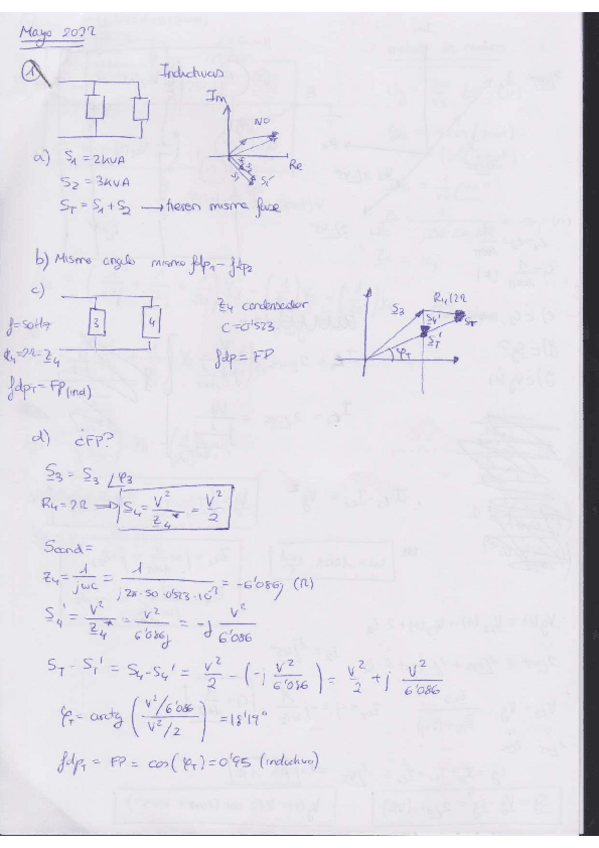 Mayo 2022
1
Inductivas
Im
NO
Re
a) S1 = 2kVA
S2 = 3kVA
ST = S1 + S2 → tienen misma fase
b) Mismo angulo mismo fdp1 - fdp2
c)
f=50Hz
3
4
Z4 condensador
C=0'523
fdp = FP
S3
R4/2Ω
S4'
ST
ST'
φT
fdpT = FP (ind)
d) ¿FP?
S3 = S3 ∠φ3
R4=2Ω ⟹ S4 = V²/Z4* = V²/2
Scond=
Z4 = 1/jωC = 1/(j2π·50·0'523·10⁻³) = -6'086j (Ω)
S4' = V²/Z4* = V²/6'086j = -j V²/6'086
ST - ST' = S4 - S4' = V²/2 - (-j V²/6'086) = V²/2 + j V²/6'086
φT = arctg ((V²/6'086)/(V²/2)) = 18'19°
fdpT = FP = cos(φT) = 0'95 (inductivo)